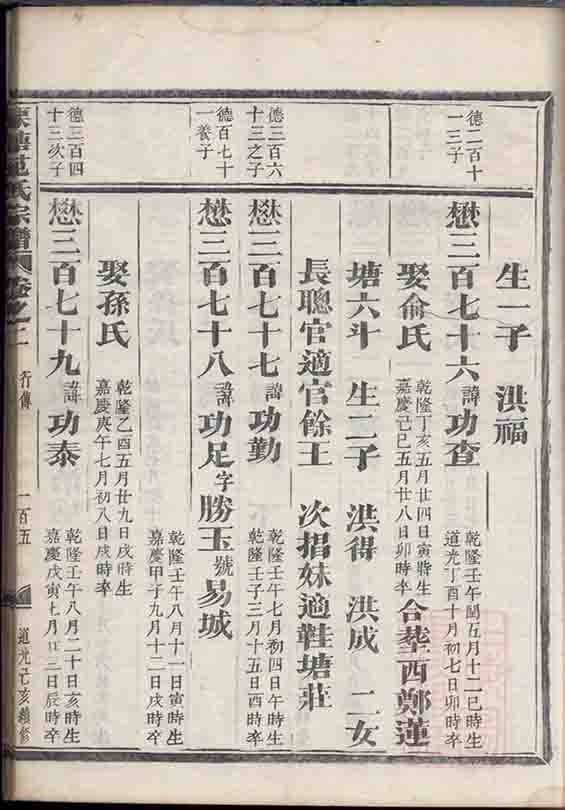 生一子 洪福
德二百十
一三子
懋三百七十六諱功查
乾隆壬午閏五月十二巳時生
道光丁酉十月初七日卯時卒
娶俞氏
乾隆丁亥五月廿四日寅時生
嘉慶己巳五月廿八日卯時卒
合塟西鄭蓮
塘六斗 生二子 洪得 洪成 二女
長聰官適官餘王 次招妹適鞋塘莊
德三百六
十三之子
懋三百七十七諱功勤
乾隆壬午七月初四日午時生
乾隆壬子三月十五日酉時卒
德百七十
一養子
懋三百七十八諱功足字勝玉號易城
乾隆壬午八月十一日寅時生
嘉慶甲子九月十二日戌時卒
娶孫氏
乾隆乙酉五月廿九日戌時生
嘉慶庚午七月初八日戌時卒
德三百四
十三次子
懋三百七十九諱功泰
乾隆壬午八月二十日亥時生
嘉慶戊寅七月廿二日辰時卒
氏宗譜 卷之二 行傳 一百五 道光己亥續修